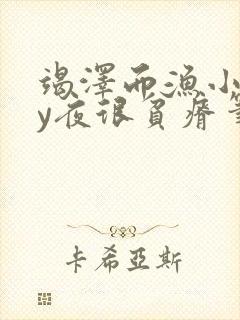 竭澤而漁小
y夜很負瘠筆
卡希亞斯